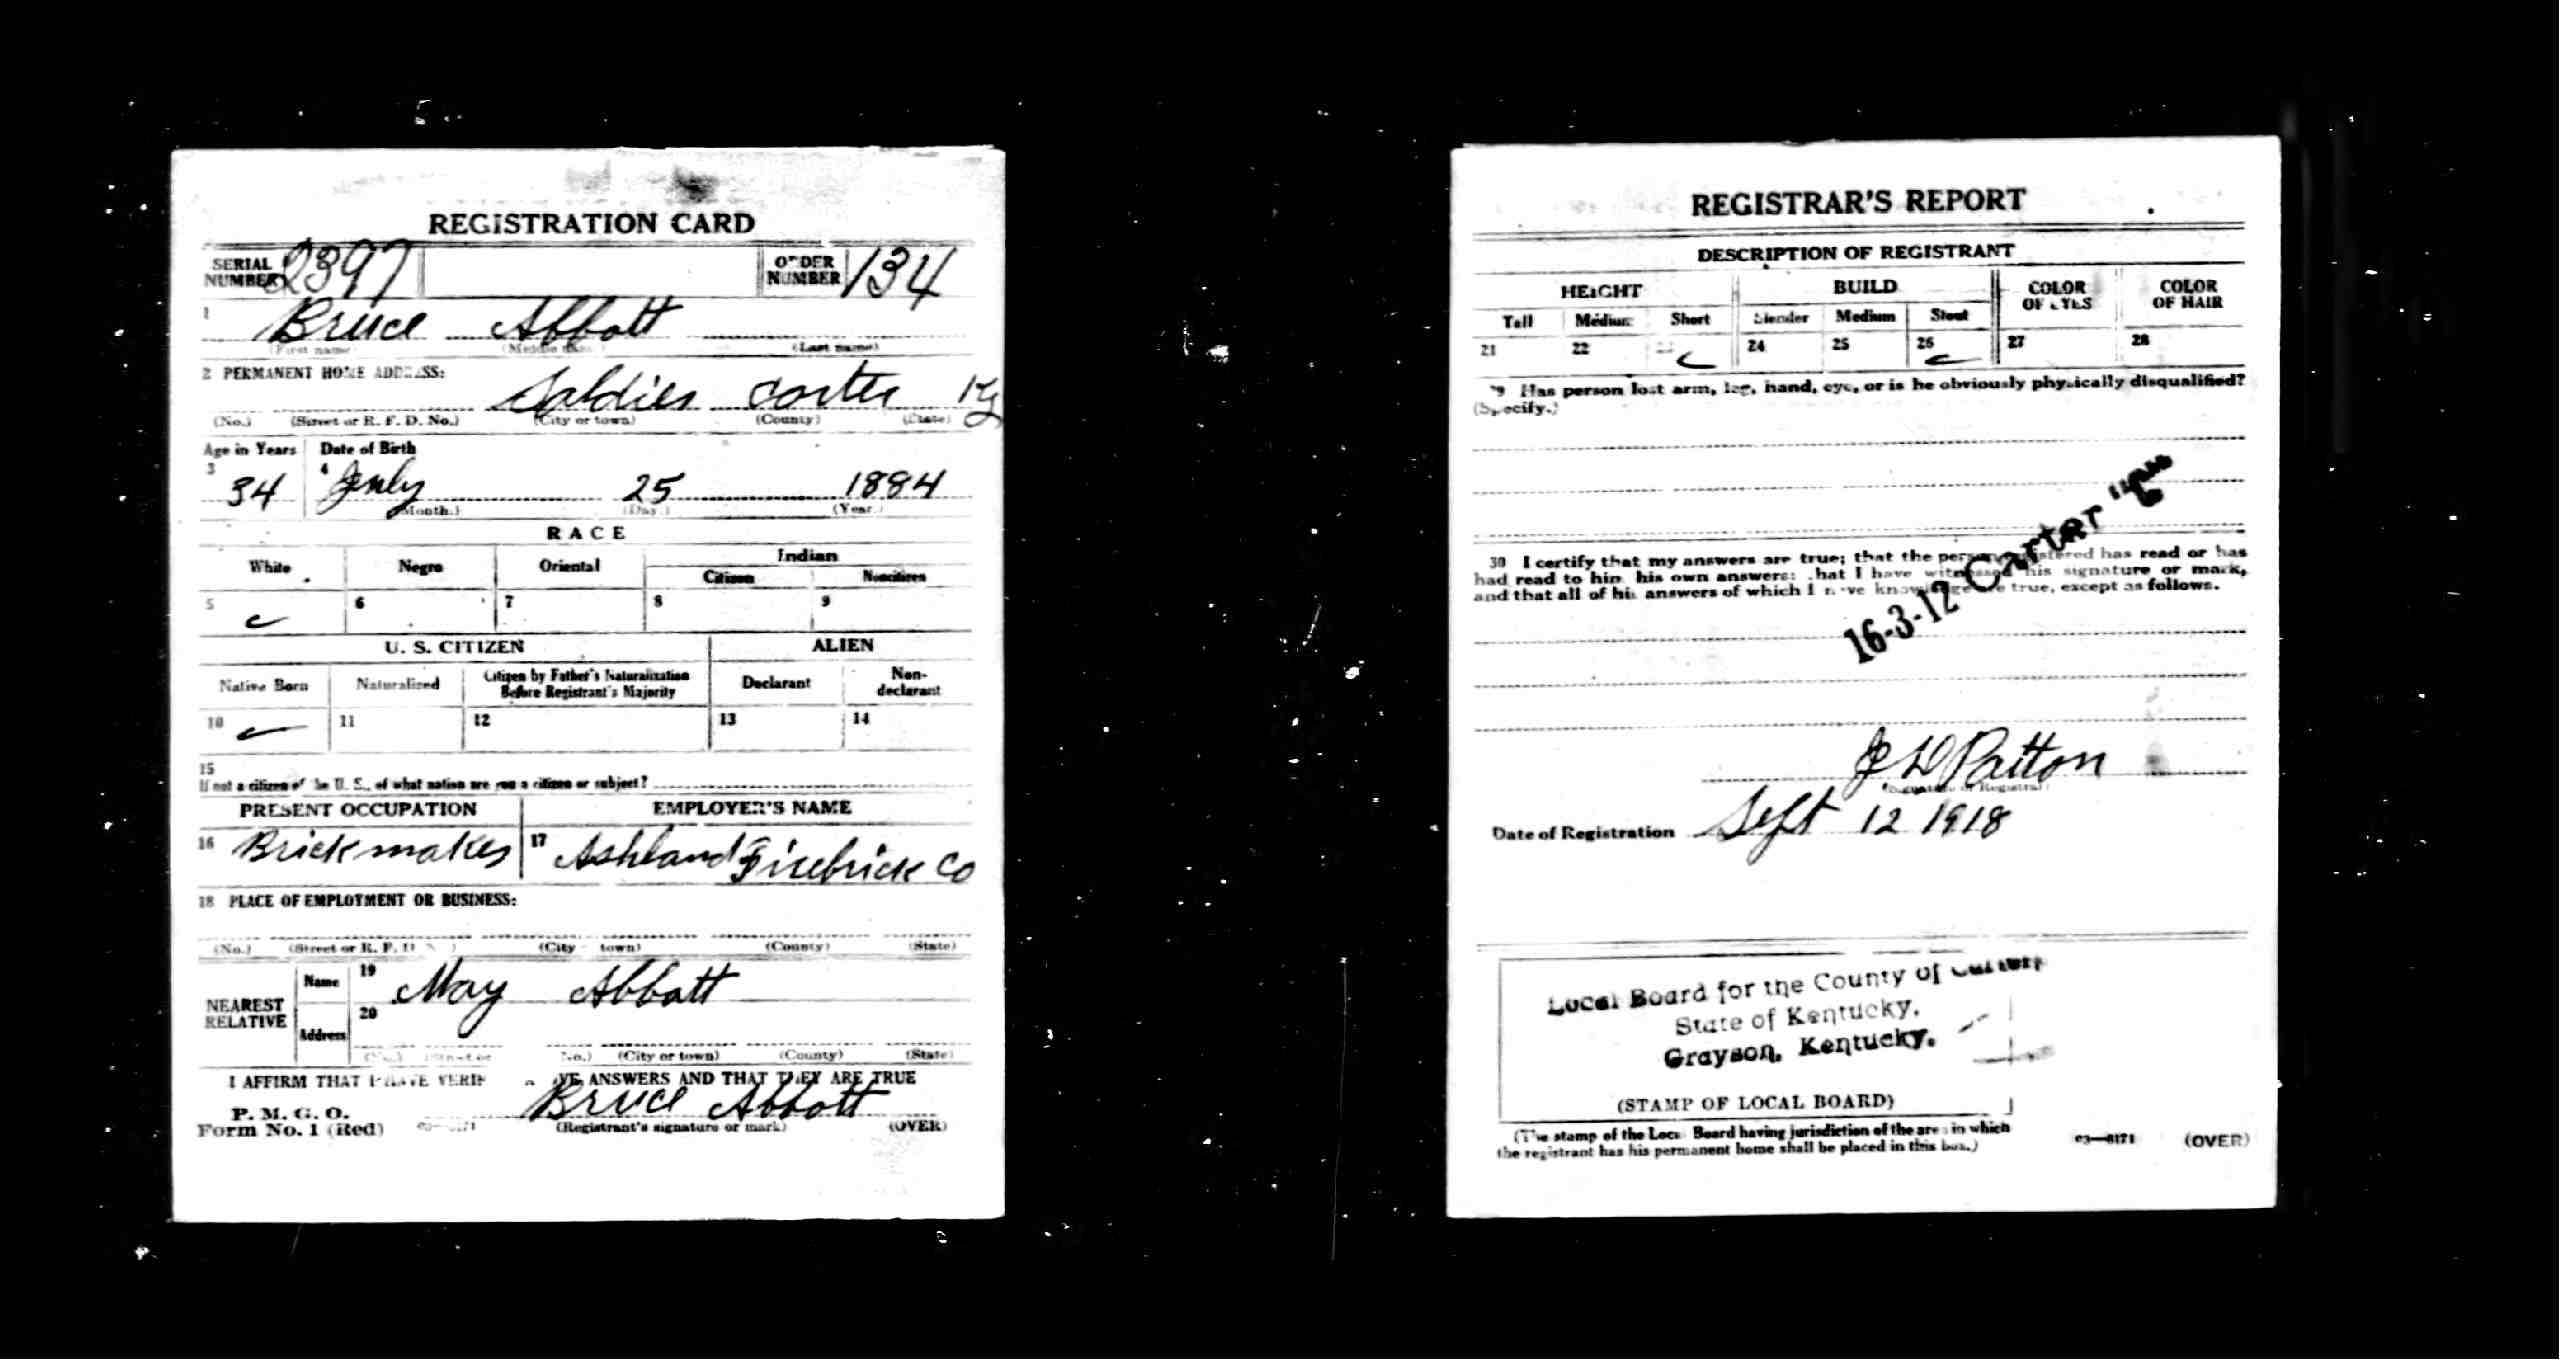 REGISTRATION CARD
SERIAL NUMBER 2397 ORDER NUMBER 134
1 Bruce Abbott
(First name) (Middle name) (Last name)
2 PERMANENT HOME ADDRESS:
Soldier Carter Ky
(No.) (Street or R. F. D. No.) (City or town) (County) (State)
Age in Years Date of Birth
3 34 4 July 25 1884
(Month.) (Day.) (Year.)
RACE
White Negro Oriental Indian
Citizen Noncitizen
5 6 7 8 9
U. S. CITIZEN ALIEN
Native Born Naturalized Citizen by Father's Naturalization Before Registrant's Majority Declarant Non-declarant
10 11 12 13 14
15
If not a citizen of the U. S., of what nation are you a citizen or subject?
PRESENT OCCUPATION EMPLOYER'S NAME
16 Brick maker 17 Ashland Firebrick Co
18 PLACE OF EMPLOYMENT OR BUSINESS:
(No.) (Street or R. F. D. ) (City town) (County) (State)
NEAREST RELATIVE Name 19 May Abbott
Address 20
(No.) (Street or No.) (City or town) (County) (State)
I AFFIRM THAT I HAVE VERIF VE ANSWERS AND THAT THEY ARE TRUE
P. M. G. O.
Form No. 1 (Red) Bruce Abbott
(Registrant's signature or mark) (OVER)
REGISTRAR'S REPORT
DESCRIPTION OF REGISTRANT
HEIGHT BUILD COLOR OF EYES COLOR OF HAIR
Tall Medium Short Slender Medium Stout
21 22 24 25 26 27 28
29 Has person lost arm, leg, hand, eye, or is he obviously physically disqualified?
(Specify.)
30 I certify that my answers are true; that the person registered has read or has
had read to him his own answers; that I have witnessed his signature or mark,
and that all of his answers of which I have knowledge are true, except as follows.
16-3-12 Carter
J D Patton
(Signature of Registrar)
Date of Registration Sept 12 1918
Local Board for the County of Carter
State of Kentucky,
Grayson, Kentucky.
(STAMP OF LOCAL BOARD)
(The stamp of the Local Board having jurisdiction of the area in which
the registrant has his permanent home shall be placed in this box.)
03—6171 (OVER)